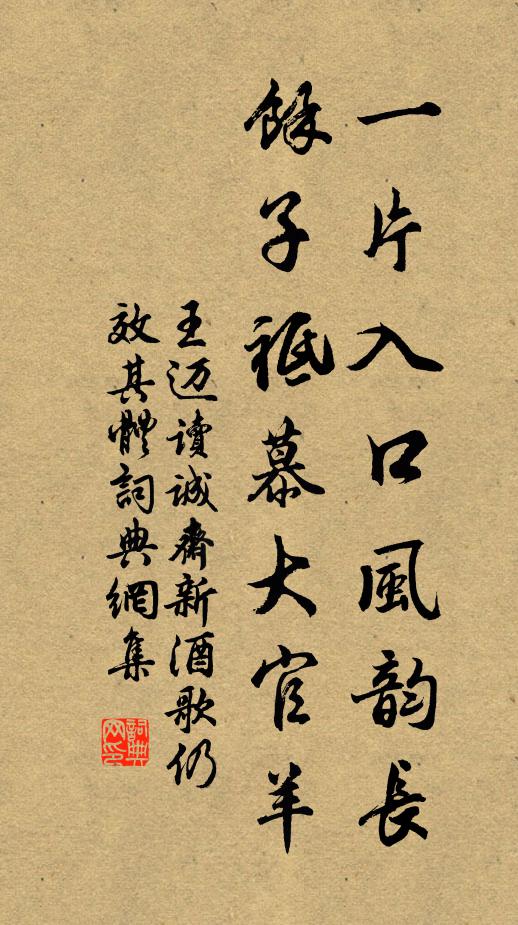 一片入口風韵長
餘子祗慕大官羊
王迈讀诚齋新酒歌仍
效其體詞典網集
詞典網印